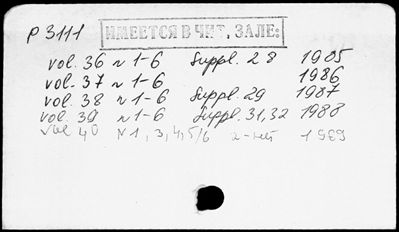 P 3111
ИМЕЕТСЯ В ЧИТ. ЗАЛЕ:
vol. 36 n 1-6 Suppl. 28 1985
vol. 37 n 1-6 1986
vol. 38 n 1-6 Suppl. 29 1987
vol. 39 n 1-6 Suppl. 31,32 1988
vol 40 N 1, 3, 4, 5/6 1989